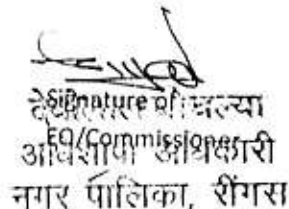 Signature of
EO/Commissioner
अधिशाषी अधिकारी
नगर पालिका, रींगस